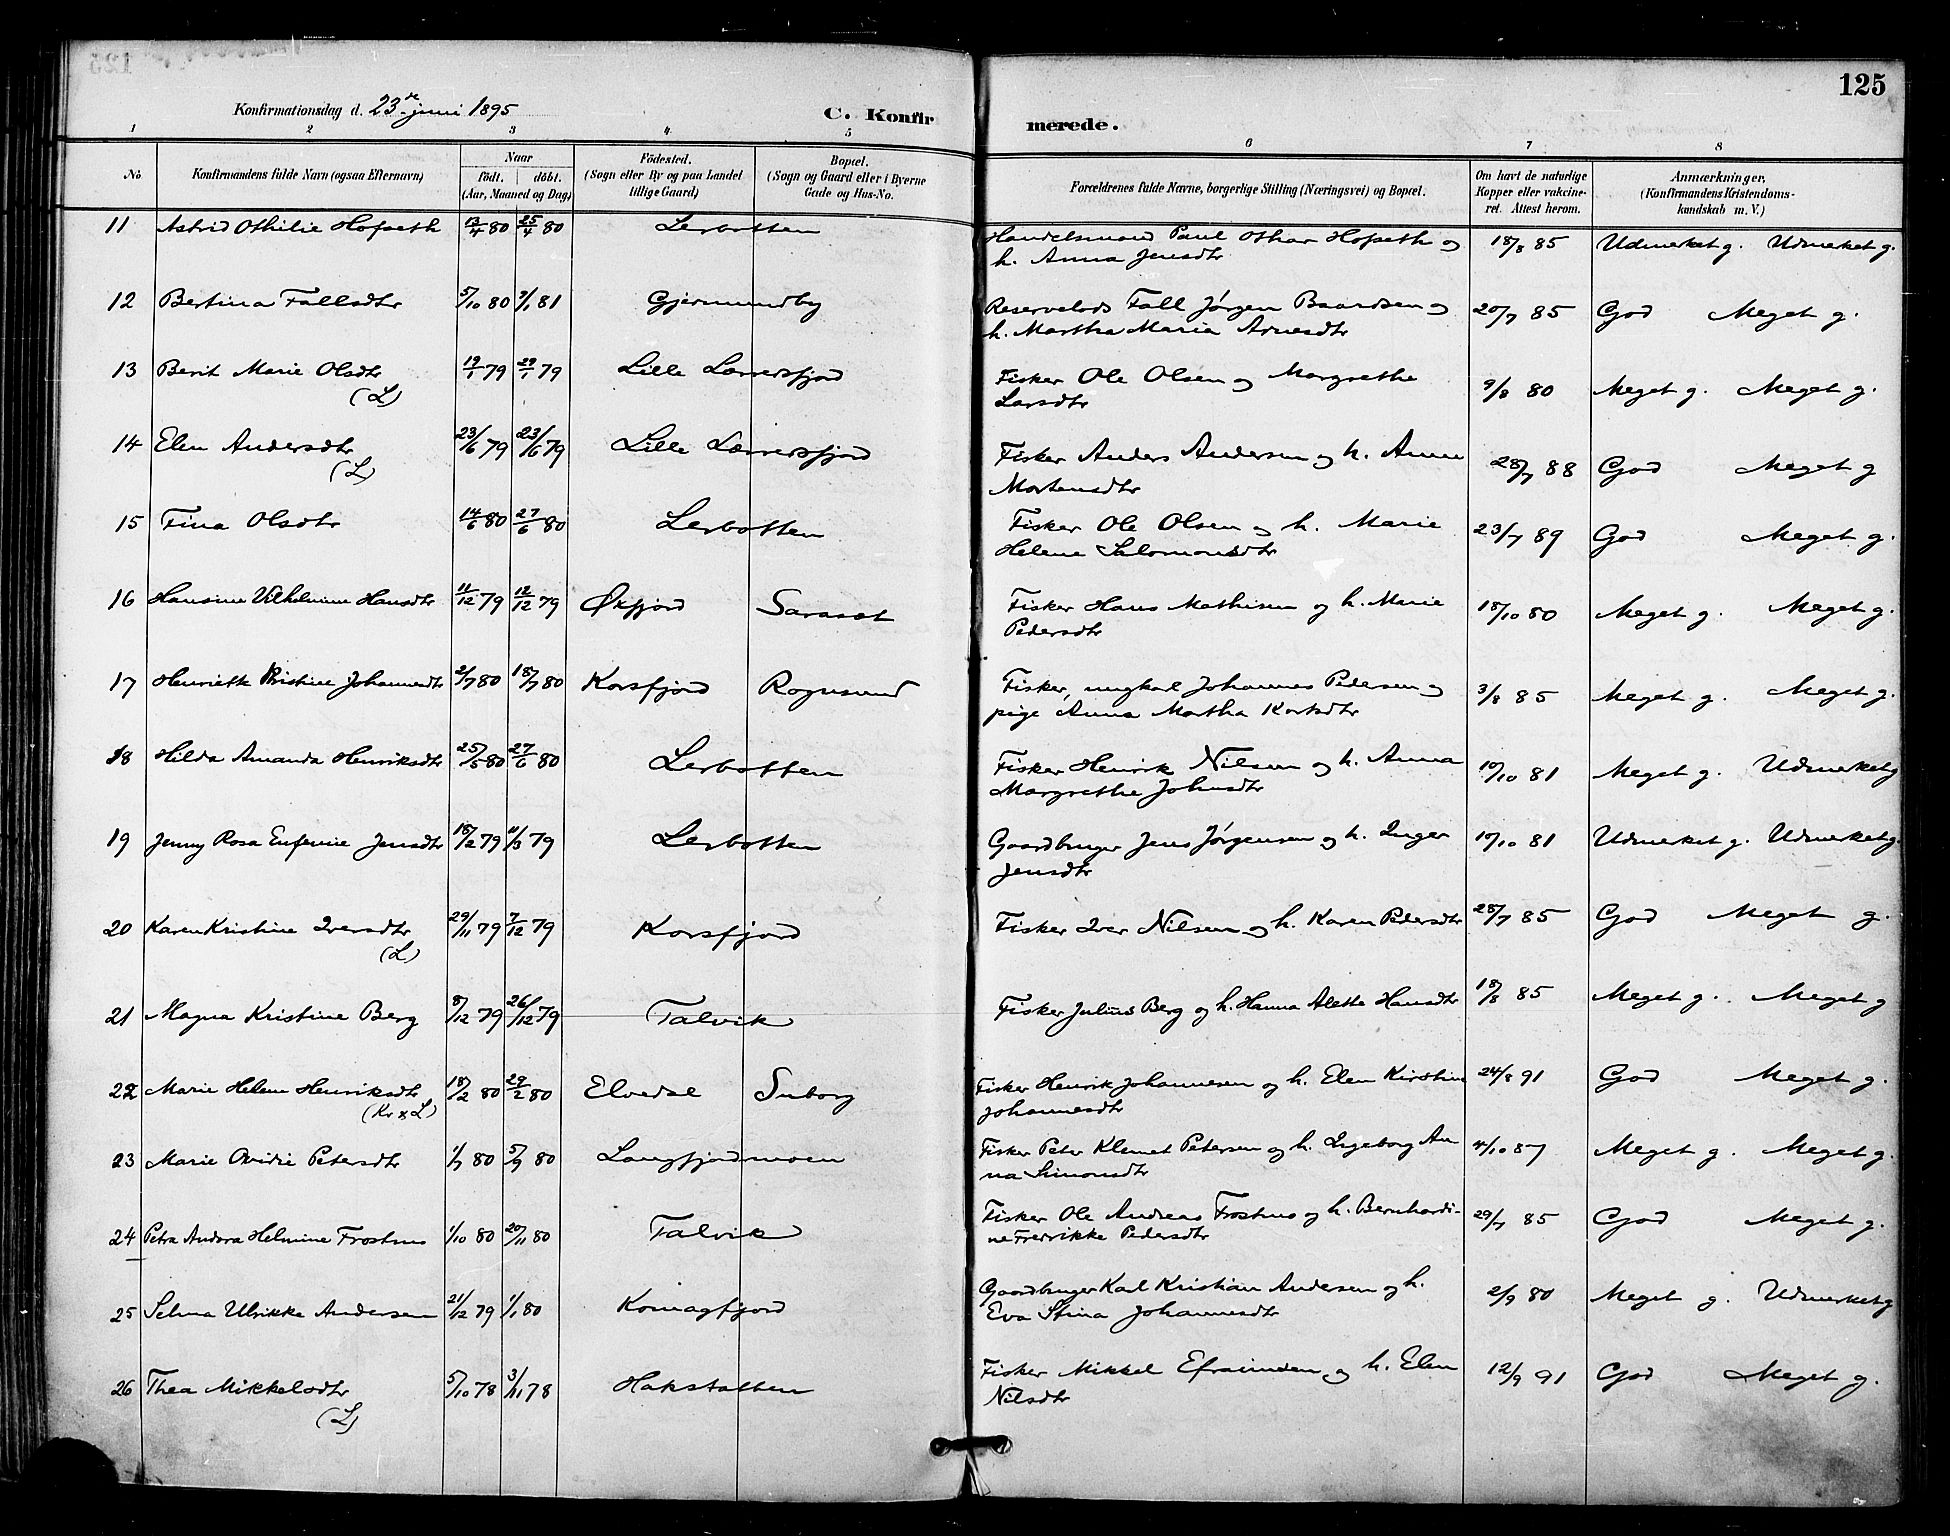 125
Konfirmationsdag d. 23de juni 1895
C. Konfirmerede.
1 2 3 4 5 6 7 8
No. Konfirmandens fulde Navn (ogsaa Efternavn) Naar födt. döbt. (Aar, Maaned og Dag) Födested. (Sogn eller By og paa Landet tillige Gaard) Bopæl. (Sogn og Gaard eller i Byerne Gade og Hus-No. Forældrenes fulde Navne, borgerlige Stilling (Næringsvei) og Bopæl. Om havt de naturlige Kopper eller vakcineret. Attest herom. Anmærkninger, (Konfirmandens Kristendomskundskab m. V.)
11 Astrid Othilie Hofseth 13/4 80 25/4 80 Lerbotten Handelsmand Paul Othar Hofseth og 18/8 85 Udmerket g. Udmerket g.
h. Anna Jensdtr
12 Bertina Fallsdtr 5/10 80 9/1 81 Gjermundby Reservelods Fall Jörgen Baardsen og 20/7 85 God Meget g.
h. Martha Maria Arnesdtr
13 Berit Marie Olsdtr 19/1 79 29/1 79 Lille Lerresfjord Fisker Ole Olsen og Margrethe 9/8 80 Meget g. Meget g.
(L) Larsdtr
14 Elen Andersdtr 23/6 79 23/6 79 Lille Lerresfjord Fisker Anders Andersen og h. Anne 28/7 88 God Meget g
(L) Mortensdtr
15 Fina Olsdtr 14/6 80 27/6 80 Lerbotten Fisker Ole Olsen og h. Marie 23/7 89 God Meget g.
Helene Salomonsdtr
16 Hansine Vilhelmine Hansdtr 11/12 79 12/12 79 Øxfjord Sarasæt Fisker Hans Mathisen og h. Marie 18/10 80 Meget g. Meget g.
Pedersdtr
17 Henriette Kristine Johannesdtr 2/7 80 18/7 80 Korsfjord Rognsund Fisker, ungkarl Johannes Pedersen og 3/8 85 Meget g. Meget g.
pige Anna Martha Kortsdtr
18 Hilda Amanda Henriksdtr 25/5 80 27/6 80 Lerbotten Fisker Henrik Nilsen og h. Anna 10/10 81 Meget g. Udmerket g
Margrethe Johnsdtr
19 Jenny Rosa Eufemie Jensdtr 18/2 79 11/3 79 Lerbotten Gaardbruger Jens Jörgensen og h. Inger 10/10 81 Udmerket g. Udmerket g.
Jensdtr
20 Karen Kristine Iversdtr 29/11 79 7/12 79 Korsfjord Fisker Iver Nilsen og h. Karen Pedersdtr 28/7 85 God Meget g.
(L)
21 Magna Kristine Berg 8/12 79 26/12 79 Talvik Fisker Julius Berg og h. Hanna Alette Hansdtr 18/8 85 Meget g. Meget g
22 Marie Helene Henriksdtr 18/2 80 29/2 80 Elvedal Suborg Fisker Henrik Johannesen og h. Elen Kirstine 24/8 91 God Meget g.
(Kv x L) Johannesdtr
23 Marie Ovidie Petersdtr 1/7 80 5/9 80 Langfjordmoen Fisker Peter Klemet Petersen og h. Ingeborg An 4/10 87 Meget g. Meget g.
na Simonsdtr
24 Petra Andora Helmine Frostmo 1/10 80 20/11 80 Talvik Fisker Ole Andreas Frostmo og h. Bernhardi- 29/7 85 God Meget g.
ne Fredrikke Pedersdtr
25 Selma Ulrikke Andersen 21/12 79 1/1 80 Komagfjord Gaardbruger Karl Kristian Andersen og h. 2/9 80 Meget g. Udmerket g
Eva Stina Johannesdtr
26 Thea Mikkelsdtr 5/10 78 3/11 78 Hakstabben Fisker Mikkel Efraimsen og h. Elen 12/9 91 God Meget g.
(L) Nilsdtr